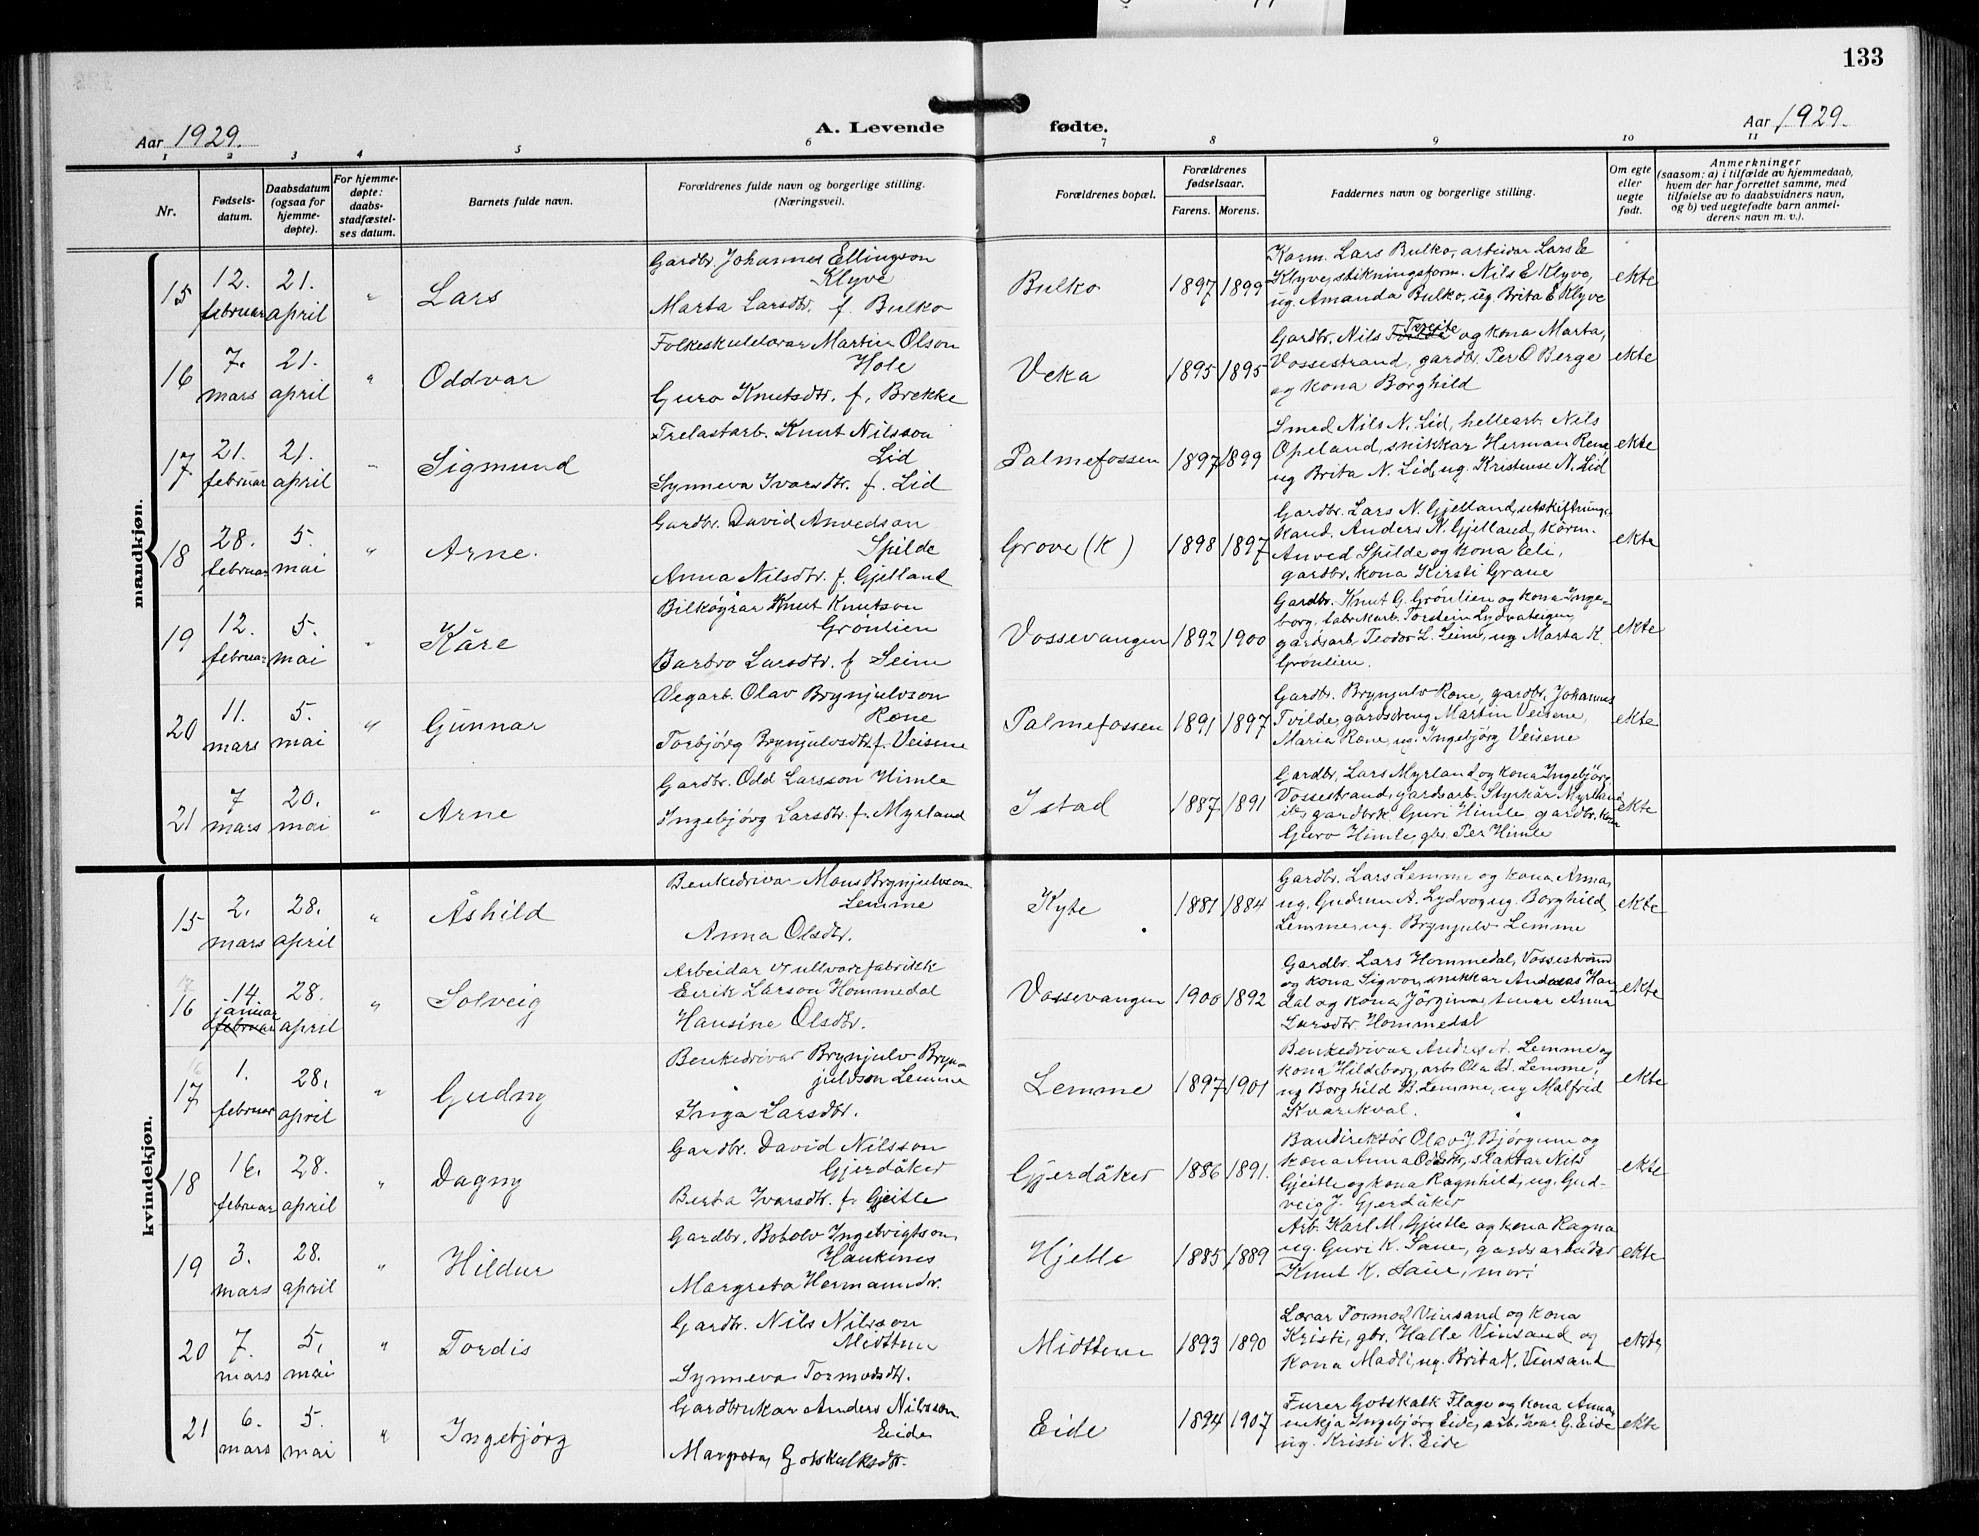 133
Aar 1929.
A. Levende fødte.
Aar 1929.
1 2 3 4 5 6 7 8 9 10 11
Nr.
Fødsels-
datum.
Daabsdatum
(ogsaa for
hjemme-
døpte).
For hjemme-
døpte:
daabs-
stadfæstel-
ses datum.
Barnets fulde navn.
Forældrenes fulde navn og borgerlige stilling.
(Næringsvei).
Forældrenes bopæl.
Forældrenes
fødselsaar.
Farens. Morens.
Faddernes navn og borgerlige stilling.
Om egte
eller
uegte
født.
Anmerkninger
(saasom: a) i tilfælde av hjemmedaab,
hvem der har forrettet samme, med
tilføielse av to daabsvidners navn,
og b) ved uegtefødte barn anmel-
derens navn m. v.).
mandkjøn.
15
12.
februar
21.
april
"
Lars
Gardbr. Johannes Ellingson
Klyve
Marta Larsdtr. f. Bulko
Bulko
1897 1899
Korm. Lars Bulko, arbeidar Lars E
Klyve, stikningsform. Nils E Klyve,
ug. Amanda Bulko, ug. Brita E Klyve
ekte
16
7.
mars
21.
april
"
Oddvar
Folkeskulelærar Martin Olson
Hole
Guro Knutsdtr. f. Brekke
Veka
1895 1895
Gardbr. Nils Tveite og kona Marta,
Vossestrand, gardbr. Per O Berge
og kona Borghild
ekte
17
21.
februar
21.
april
"
Sigmund
Trelastarb. Knut Nilsson
Lid
Synneva Ivarsdtr. f. Lid
Palmefossen
1897 1899
Smed Nils N. Lid, hellearb. Nils
Opeland, snikkar Herman Rene,
ug Brita N. Lid, ug. Kristense N. Lid
ekte
18
28.
februar
5.
mai
"
Arne.
Gardbr. David Anvedson
Spilde
Anna Nilsdtr. f. Gjelland
Grove (K)
1898 1897
Gardbr. Lars N. Gjelland, utskiftnings-
kand. Anders N. Gjelland, korm.
Anved Spilde og kona Eli,
gardbr. kona Kirsti Grave
ekte
19
12.
februar
5.
mai
"
Kåre
Bilkøyrar Knut Knutson
Grönlien
Barbro Larsdtr. f Seim
Vossevangen
1892 1900
Gardbr. Knut G. Grönlien og kona Inge-
borg, fabrikarb. Torstein Lydvateigen,
gardsarb. Teodor L. Seim, ug Marta K.
Grönlien.
ekte
20
11.
mars
5.
mai
"
Gunnar
Vegarb. Olav Brynjulvson
Rone
Torbjörg Brynjulvsdtr. f. Veisene
Palmefossen
1891 1897
Gardbr. Brynjulv Rone, gardbr. Johannes
Tvilde, gardsdreng Martin Veisene,
Maria Rone, ug. Ingebjörg Veisene
ekte
21
7
mars
20.
mai
"
Arne
Gardbr. Odd Larsson Himle
Ingebjörg Larsdtr. f. Myrland
Istad
1887 1891
Gardbr. Lars Myrland og kona Ingebjörg
Vossestrand, gardsarb. Styrkår Myrland
gardbrk. Guri Himle, gardbr. kona
Guro Himle, gbr. Per Himle
ekte
kvindekjøn.
15
2.
mars
28.
april
"
Åshild
Benkedrivar Mons Brynjulvson
Lemme
Anna Olsdtr.
Kyte
1881 1884
Gardbr. Lars Lemme og kona Anna,
ug. Gudrun A. Lydvo, ug. Borghild
Lemme, ug. Brynjulv Lemme
ekte
16
14
januar
februar
28.
april
"
Solveig
Arbeidar v. ullvarefabrikk
Eirik Larson Hommedal
Hansine Olsdtr.
Vossevangen
1900 1892
Gardbr. Lars Hommedal, Vossestrand
og kona Sigvor, snikkar Andreas Han-
dal og kona Jörgina, Anna
Larsdtr. Hommedal
ekte
17
1.
februar
28.
april
"
Gudny
Benkedrivar Brynjulv Bryn-
julvson Lemme
Inga Larsdtr.
Lemme
1897 1901
Benkedrivar Andres A. Lemme og
kona Hildeborg, arb. Ola B. Lemme,
ug Borghild B. Lemme, ug Malfrid
Kvarekval.
ekte
18
16.
februar
28.
april
"
Dagny
Gardbr. David Nilsson
Gjerdåker
Berta Ivarsdtr. f. Gjeitle
Gjerdåker
1886 1891.
Bandirektør Olav J. Bjørgum og
kona Anna Odsdtr, slaktar Nils
Gjeitle og kona Ragnhild, ug. Gud-
veig J. Gjerdåker
ekte
19
3.
mars
28.
april
"
Hildur
Gardbr. Botolv Ingebrigtson
Haukenes
Margreta Hermannsdtr.
Hjelle
1885 1889
Arb. Karl M. Gjitle og kona Ragna
ug. Guri K. Saue, gardsarbeidar
Knut K. Saue, mori
ekte
20
7.
mars
5.
mai
"
Tordis
Gardbr. Nils Nilsson
Midttun
Synneva Tormodsdtr.
Midttun
1893 1890
Lærar Tormod Vinsand og kona
Kristi, gbr. Halle Vinsand og
kona Madli, ug. Brita K. Vinsand
ekte,
21
6.
mars
5.
mai
"
Ingebjörg
Gardbrukar Anders Nilsson
Eide
Margreta Gotskalksdtr.
Eide
1894 1907
Furer Gotskalk Flage og kona Anna,
enkja Ingebjörg Eide, arb. Ivar G. Eide
ug. Kristi N. Eide
ekte